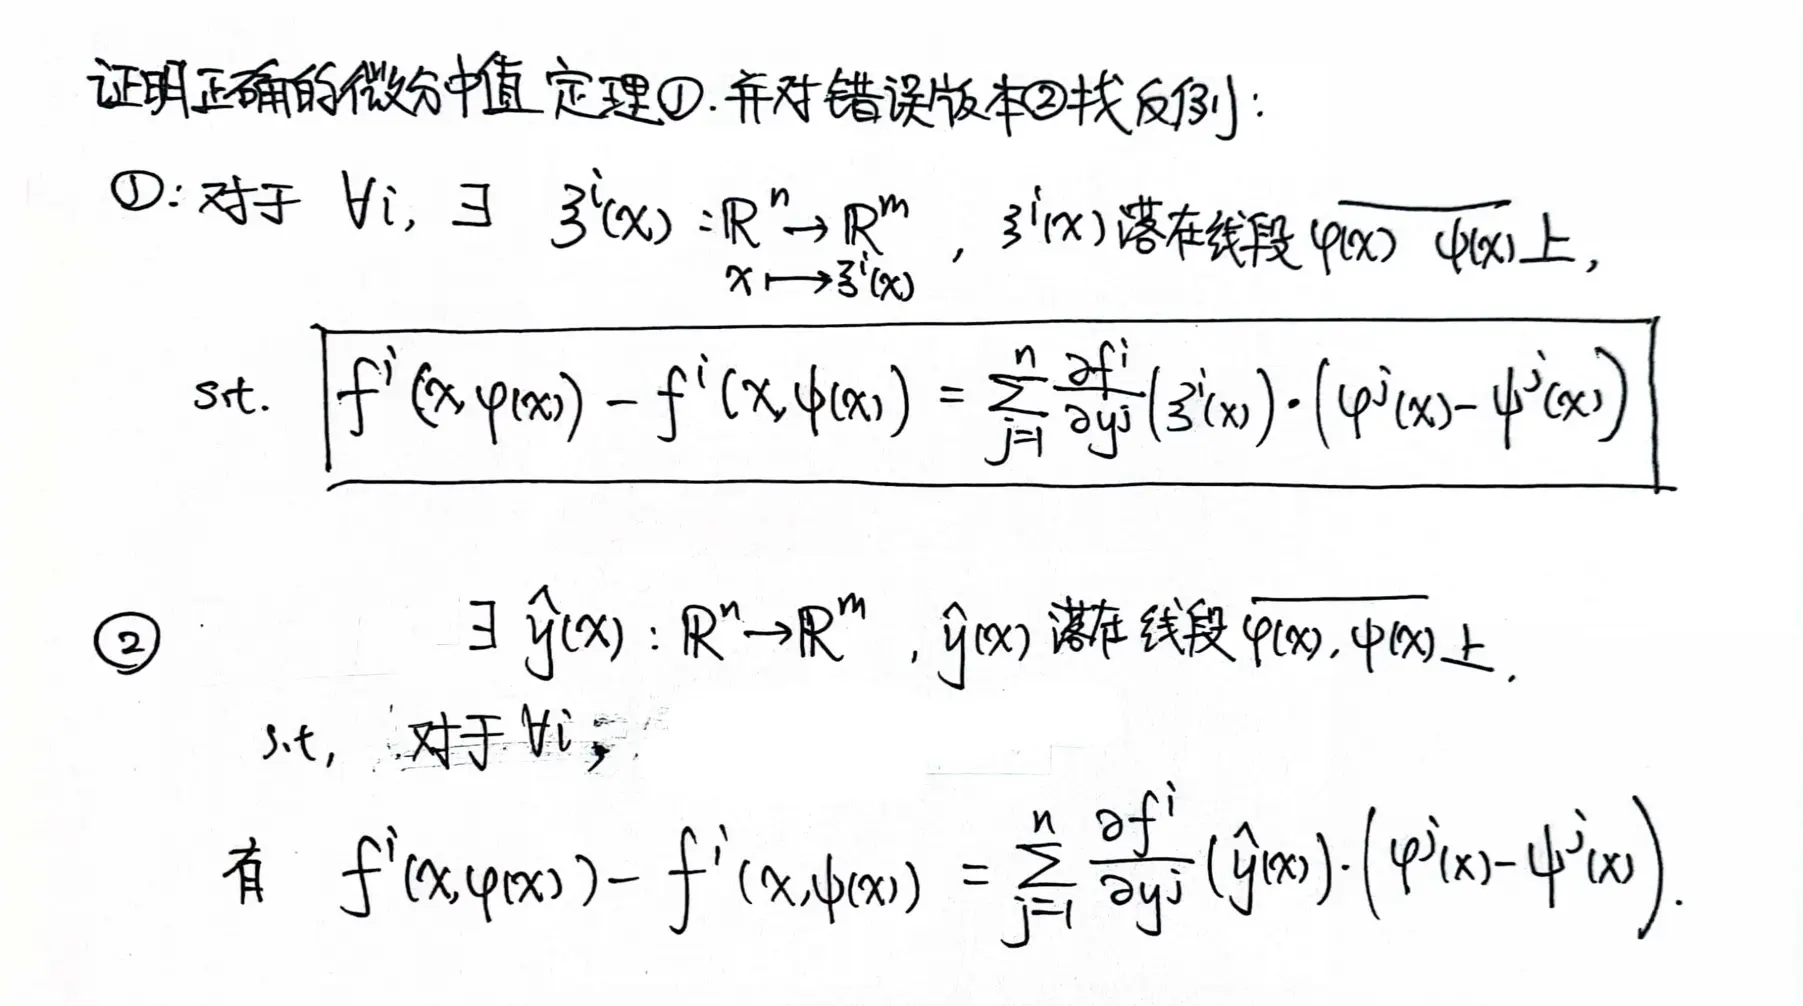 证明正确的微分中值定理①.并对错误版本②找反例:
①: 对于 ∀i, ∃ ξⁱ(x) : ℝⁿ → ℝᵐ , ξⁱ(x) 落在线段 \overline{φ(x) ψ(x)} 上,
x ⟼ ξⁱ(x)
s.t. fⁱ(x,φ(x)) - fⁱ(x,ψ(x)) = \sum_{j=1}^{n} \frac{∂fⁱ}{∂yʲ} (ξⁱ(x)) · (φʲ(x) - ψʲ(x))
② ∃ ŷ(x) : ℝⁿ → ℝᵐ , ŷ(x) 落在线段 \overline{φ(x), ψ(x)} 上.
s.t, 对于 ∀i,
有 fⁱ(x,φ(x)) - fⁱ(x,ψ(x)) = \sum_{j=1}^{n} \frac{∂fⁱ}{∂yʲ} (ŷ(x)) · (φʲ(x) - ψʲ(x)).